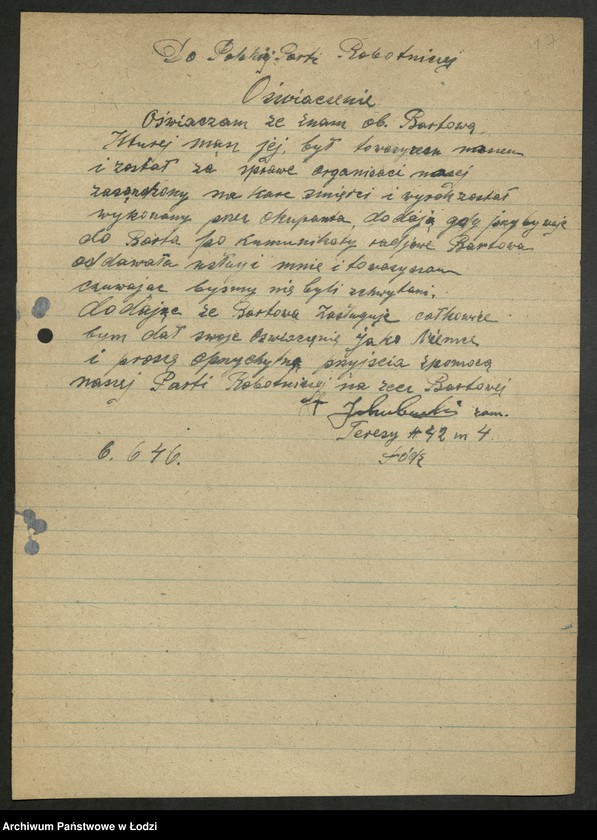 17
Do Polskiej Parti Robotniczej
Oświaczenie
Oświaczam że znam ob. Bartową,
Kturej mąsz jej, był towarzyszem naszem
i został za sprawe organizaci naszej
zasądzony na kare śmierci i wyrok został
wykonany przez okupanta, dodają gdy przybywuje
do Barta po komunikaty radjowe Bartowa
oddawała usługi mnie i towarzyszom
czuwając byśmy nie byli schwytani.
dodając że Bartowa zasługuje całkowice
bym dał swoje oświeczenie jako Niemce
i proszę o przychylną przyjścia spomocą
naszej Parti Robotniczej na rzecz Bartowej
zam.
Teresy # 42 m 4.
6. 6 46.
Łódź
Archiwum Państwowe w Łodzi